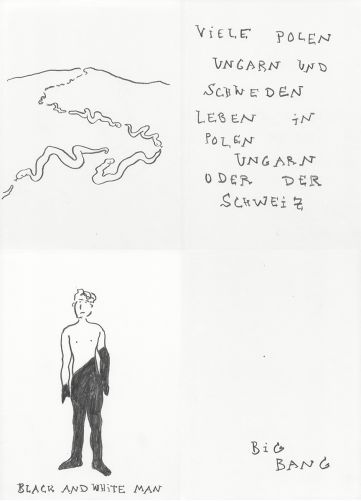 VIELE POLEN
UNGARN UND
SCHWEDEN
LEBEN IN
POLEN
UNGARN
ODER DER
SCHWEIZ
BLACK AND WHITE MAN
BIG
BANG